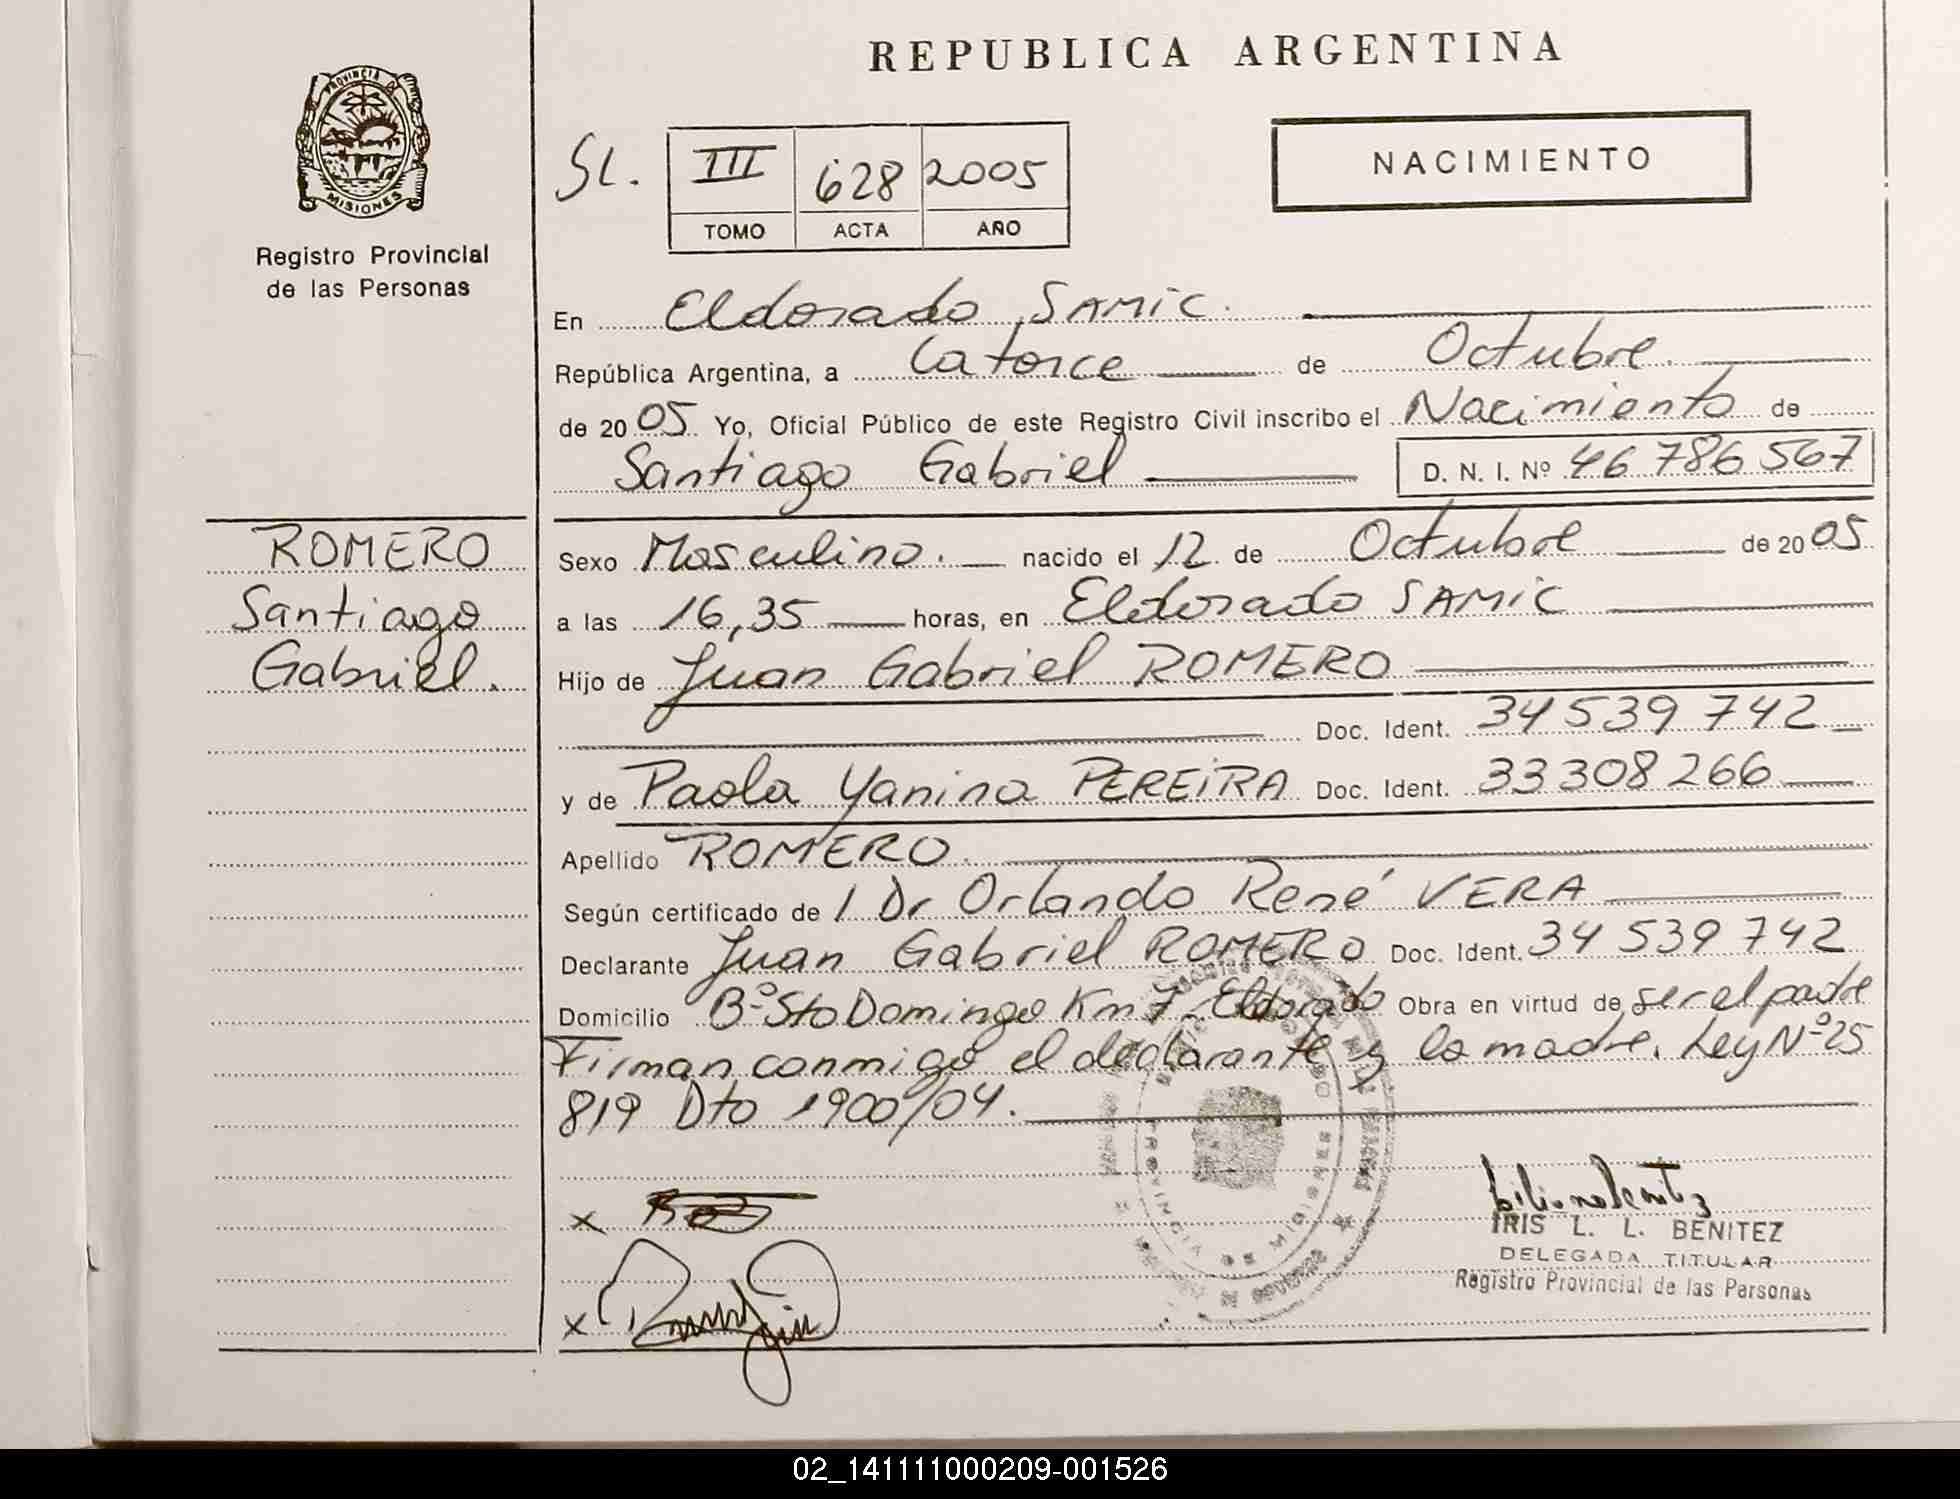 REPUBLICA ARGENTINA
PROVINCIA DE
MISIONES
Registro Provincial
de las Personas
SL.
III 628 2005
TOMO ACTA AÑO
NACIMIENTO
En Eldorado, SAMIC.
República Argentina, a Catorce de Octubre.
de 2005 Yo, Oficial Público de este Registro Civil inscribo el Nacimiento de
Santiago Gabriel D. N. I. Nº 46 786 567
ROMERO
Santiago
Gabriel.
Sexo Masculino. nacido el 12 de Octubre de 2005
a las 16,35 horas, en Eldorado SAMIC
Hijo de Juan Gabriel ROMERO
Doc. Ident. 34 539 742
y de Paola Yanina PEREIRA Doc. Ident. 33 308 266
Apellido ROMERO.
Según certificado de / Dr Orlando René VERA
Declarante Juan Gabriel ROMERO Doc. Ident. 34 539 742
Domicilio Bº Sto Domingo Km 7 - Eldorado Obra en virtud de ser el padre
Firman conmigo el declarante y la madre. Ley Nº 25
819 Dto 1900/04.
PROVINCIA DE MISIONES
x
x
IRIS L. L. BENITEZ
DELEGADA TITULAR
Registro Provincial de las Personas
02_141111000209-001526